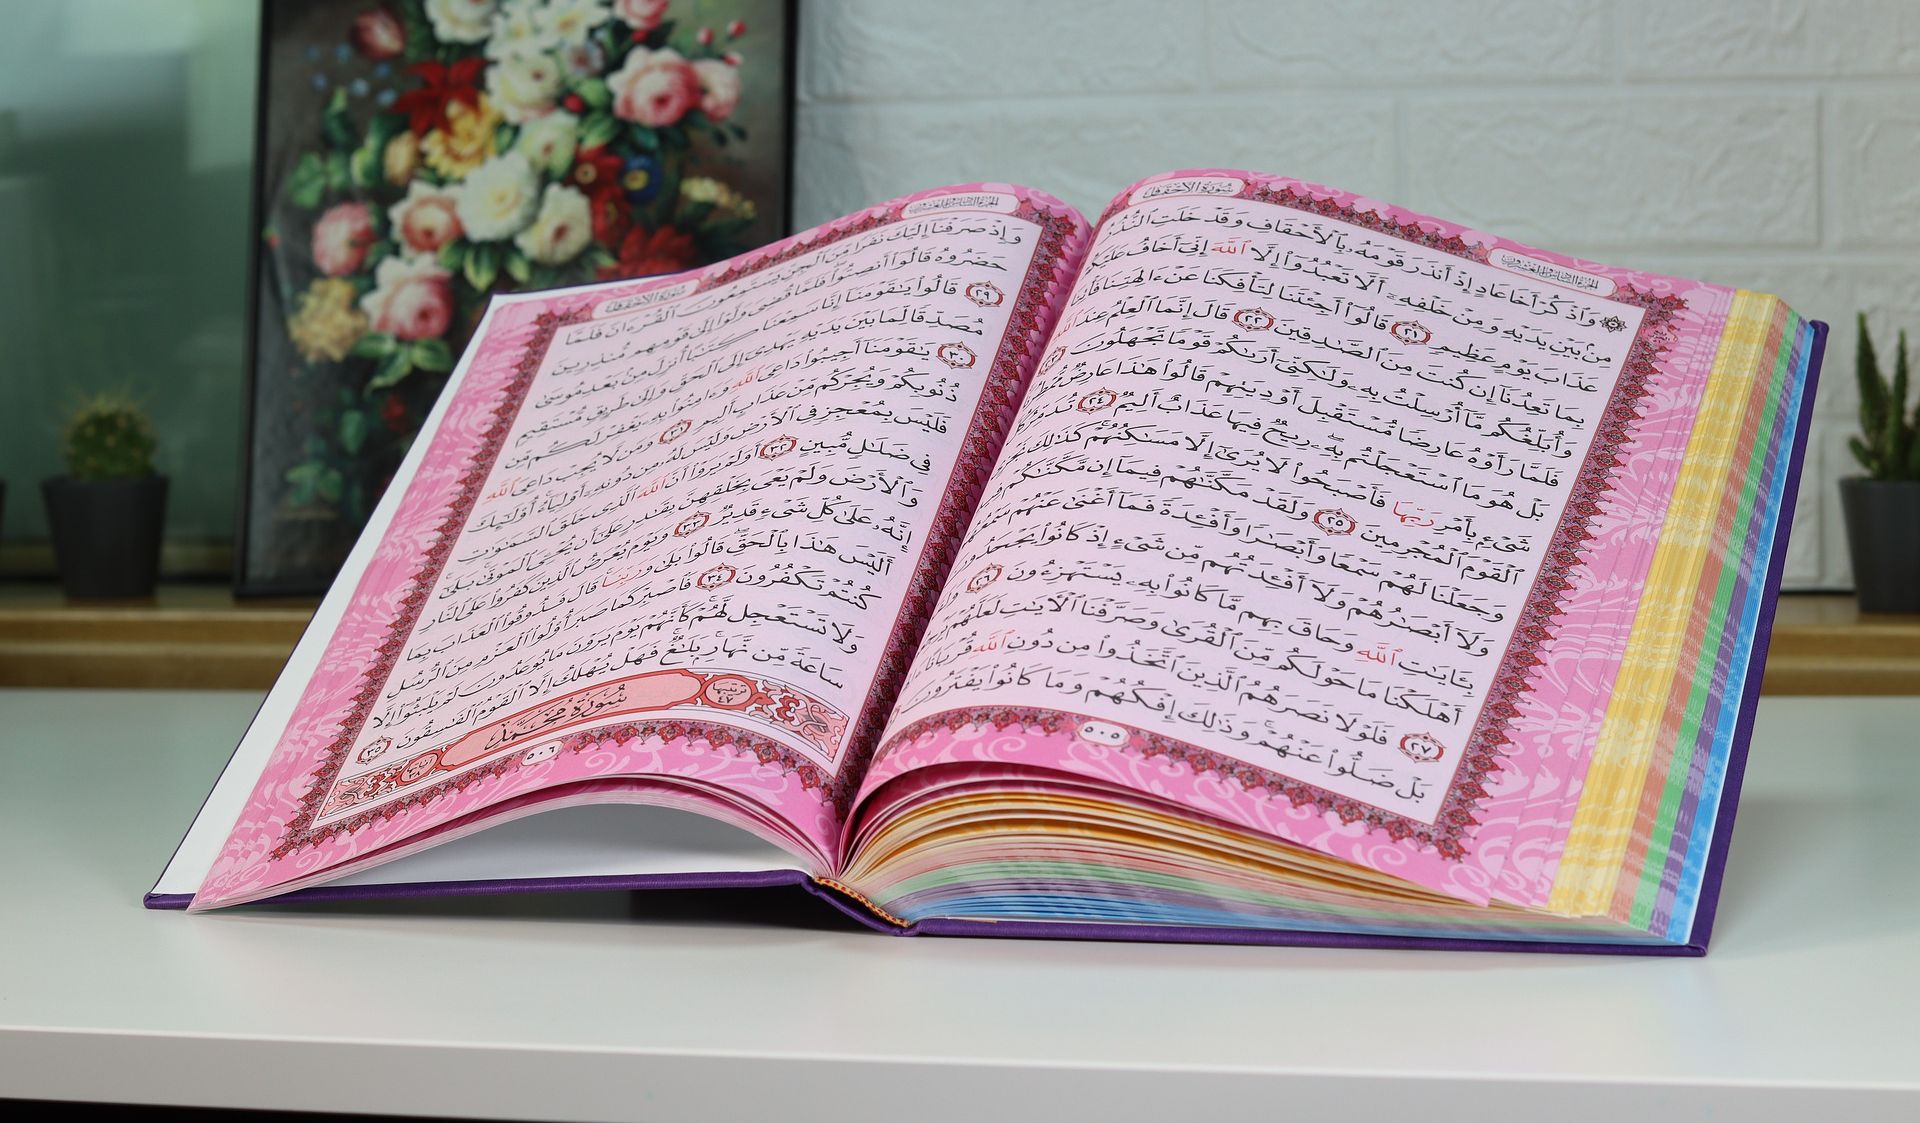 سُورَةُ الأَحْقَافِ
الجُزْءُ السَّادِسُ وَالعِشْرُونَ
۞ وَٱذْكُرْ أَخَا عَادٍ إِذْ أَنذَرَ قَوْمَهُۥ بِٱلْأَحْقَافِ وَقَدْ خَلَتِ ٱلنُّذُرُ
مِنۢ بَيْنِ يَدَيْهِ وَمِنْ خَلْفِهِۦٓ أَلَّا تَعْبُدُوٓا۟ إِلَّا ٱللَّهَ إِنِّىٓ أَخَافُ عَلَيْكُمْ
عَذَابَ يَوْمٍ عَظِيمٍ ٢١ قَالُوٓا۟ أَجِئْتَنَا لِتَأْفِكَنَا عَنْ ءَالِهَتِنَا فَأْتِنَا
بِمَا تَعِدُنَآ إِن كُنتَ مِنَ ٱلصَّٰدِقِينَ ٢٢ قَالَ إِنَّمَا ٱلْعِلْمُ عِندَ ٱللَّهِ
وَأُبَلِّغُكُم مَّآ أُرْسِلْتُ بِهِۦ وَلَٰكِنِّىٓ أَرَىٰكُمْ قَوْمًا تَجْهَلُونَ
فَلَمَّا رَأَوْهُ عَارِضًا مُّسْتَقْبِلَ أَوْدِيَتِهِمْ قَالُوا۟ هَٰذَا عَارِضٌ
بَلْ هُوَ مَا ٱسْتَعْجَلْتُم بِهِۦ رِيحٌ فِيهَا عَذَابٌ أَلِيمٌ ٢٤ تُدَمِّرُ
شَىْءٍۭ بِأَمْرِ رَبِّهَا فَأَصْبَحُوا۟ لَا يُرَىٰٓ إِلَّا مَسَٰكِنُهُمْ كَذَٰلِكَ نَجْزِى
ٱلْقَوْمَ ٱلْمُجْرِمِينَ ٢٥ وَلَقَدْ مَكَّنَّٰهُمْ فِيمَآ إِن مَّكَّنَّٰكُمْ
وَجَعَلْنَا لَهُمْ سَمْعًا وَأَبْصَٰرًا وَأَفْـِٔدَةً فَمَآ أَغْنَىٰ عَنْهُمْ سَمْعُهُمْ
وَلَآ أَبْصَٰرُهُمْ وَلَآ أَفْـِٔدَتُهُم مِّن شَىْءٍ إِذْ كَانُوا۟ يَجْحَدُونَ
بِـَٔايَٰتِ ٱللَّهِ وَحَاقَ بِهِم مَّا كَانُوا۟ بِهِۦ يَسْتَهْزِءُونَ ٢٦
أَهْلَكْنَا مَا حَوْلَكُم مِّنَ ٱلْقُرَىٰ وَصَرَّفْنَا ٱلْـَٔايَٰتِ لَعَلَّهُمْ يَرْجِعُونَ
٢٧ فَلَوْلَا نَصَرَهُمُ ٱلَّذِينَ ٱتَّخَذُوا۟ مِن دُونِ ٱللَّهِ قُرْبَانًا
بَلْ ضَلُّوا۟ عَنْهُمْ وَذَٰلِكَ إِفْكُهُمْ وَمَا كَانُوا۟ يَفْتَرُونَ
٥٠٥
الجُزْءُ السَّادِسُ وَالعِشْرُونَ
سُورَةُ الأَحْقَافِ
وَإِذْ صَرَفْنَآ إِلَيْكَ نَفَرًا مِّنَ ٱلْجِنِّ يَسْتَمِعُونَ ٱلْقُرْءَانَ فَلَمَّا
حَضَرُوهُ قَالُوٓا۟ أَنصِتُوا۟ فَلَمَّا قُضِىَ وَلَّوْا۟ إِلَىٰ قَوْمِهِم مُّنذِرِينَ
٢٩ قَالُوا۟ يَٰقَوْمَنَآ إِنَّا سَمِعْنَا كِتَٰبًا أُنزِلَ مِنۢ بَعْدِ مُوسَىٰ
مُصَدِّقًا لِّمَا بَيْنَ يَدَيْهِ يَهْدِىٓ إِلَى ٱلْحَقِّ وَإِلَىٰ طَرِيقٍ مُّسْتَقِيمٍ
٣٠ يَٰقَوْمَنَآ أَجِيبُوا۟ دَاعِىَ ٱللَّهِ وَءَامِنُوا۟ بِهِۦ يَغْفِرْ لَكُم مِّن
ذُنُوبِكُمْ وَيُجِرْكُم مِّنْ عَذَابٍ أَلِيمٍ ٣١ وَمَن لَّا يُجِبْ دَاعِىَ ٱللَّهِ
فَلَيْسَ بِمُعْجِزٍ فِى ٱلْأَرْضِ وَلَيْسَ لَهُۥ مِن دُونِهِۦٓ أَوْلِيَآءُ أُو۟لَٰٓئِكَ
فِى ضَلَٰلٍ مُّبِينٍ ٣٢ أَوَلَمْ يَرَوْا۟ أَنَّ ٱللَّهَ ٱلَّذِى خَلَقَ ٱلسَّمَٰوَٰتِ
وَٱلْأَرْضَ وَلَمْ يَعْىَ بِخَلْقِهِنَّ بِقَٰدِرٍ عَلَىٰٓ أَن يُحْـِۧىَ ٱلْمَوْتَىٰ بَلَىٰٓ
إِنَّهُۥ عَلَىٰ كُلِّ شَىْءٍ قَدِيرٌ ٣٣ وَيَوْمَ يُعْرَضُ ٱلَّذِينَ كَفَرُوا۟ عَلَى ٱلنَّارِ
أَلَيْسَ هَٰذَا بِٱلْحَقِّ قَالُوا۟ بَلَىٰ وَرَبِّنَا قَالَ فَذُوقُوا۟ ٱلْعَذَابَ بِمَا
كُنتُمْ تَكْفُرُونَ ٣٤ فَٱصْبِرْ كَمَا صَبَرَ أُو۟لُوا۟ ٱلْعَزْمِ مِنَ ٱلرُّسُلِ
وَلَا تَسْتَعْجِل لَّهُمْ كَأَنَّهُمْ يَوْمَ يَرَوْنَ مَا يُوعَدُونَ لَمْ يَلْبَثُوٓا۟ إِلَّا
سَاعَةً مِّن نَّهَارٍۭ بَلَٰغٌ فَهَلْ يُهْلَكُ إِلَّا ٱلْقَوْمُ ٱلْفَٰسِقُونَ ٣٥
تَرْتِيبُهَا ٤٧ سُورَةُ مُحَمَّدٍ آيَاتُهَا ٣٨
٥٠٦